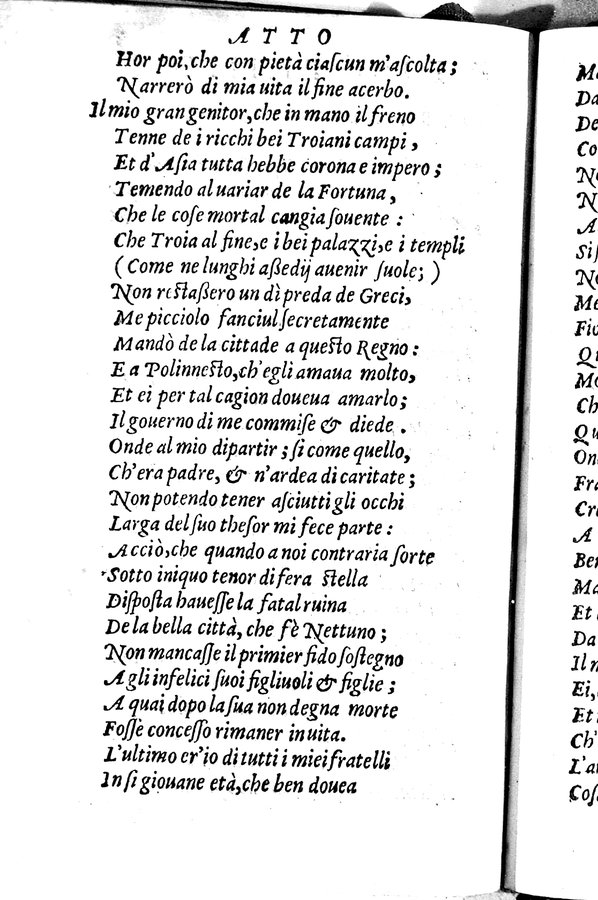 ATTO
Hor poi, che con pietà ciaſcun m'aſcolta;
Narrerò di mia uita il fine acerbo.
Il mio gran genitor, che in mano il freno
Tenne de i ricchi bei Troiani campi,
Et d'Aſia tutta hebbe corona e impero;
Temendo al uariar de la Fortuna,
Che le coſe mortal cangia ſouente:
Che Troia al fine, e i bei palazzi, e i templi
(Come ne lunghi aßedij auenir ſuole;)
Non reſtaßero un dì preda de Greci,
Me picciolo fanciul ſecretamente
Mandò de la cittade a queſto Regno:
E a Polinneſto, ch'egli amaua molto,
Et ei per tal cagion doueua amarlo;
Il gouerno di me commiſe & diede.
Onde al mio dipartir; ſi come quello,
Ch'era padre, & n'ardea di caritate;
Non potendo tener aſciutti gli occhi
Larga del ſuo theſor mi fece parte:
Acciò, che quando a noi contraria ſorte
Sotto iniquo tenor di fera ſtella
Diſpoſta haueſſe la fatal ruina
De la bella città, che fè Nettuno;
Non mancaſſe il primier fido ſoſtegno
A gli infelici ſuoi figliuoli & figlie;
A quai dopo la ſua non degna morte
Foſſe conceſſo rimaner in uita.
L'ultimo er'io di tutti i miei fratelli
In ſi giouane età, che ben douea
Da
De
Co
A
Si
Me
Fio
Qu
Mo
Ch
Qu
On
Fra
Cr
A
Ber
Ma
Et
Da
Il
Ei,
Et
Ch'
L'a
Coſ